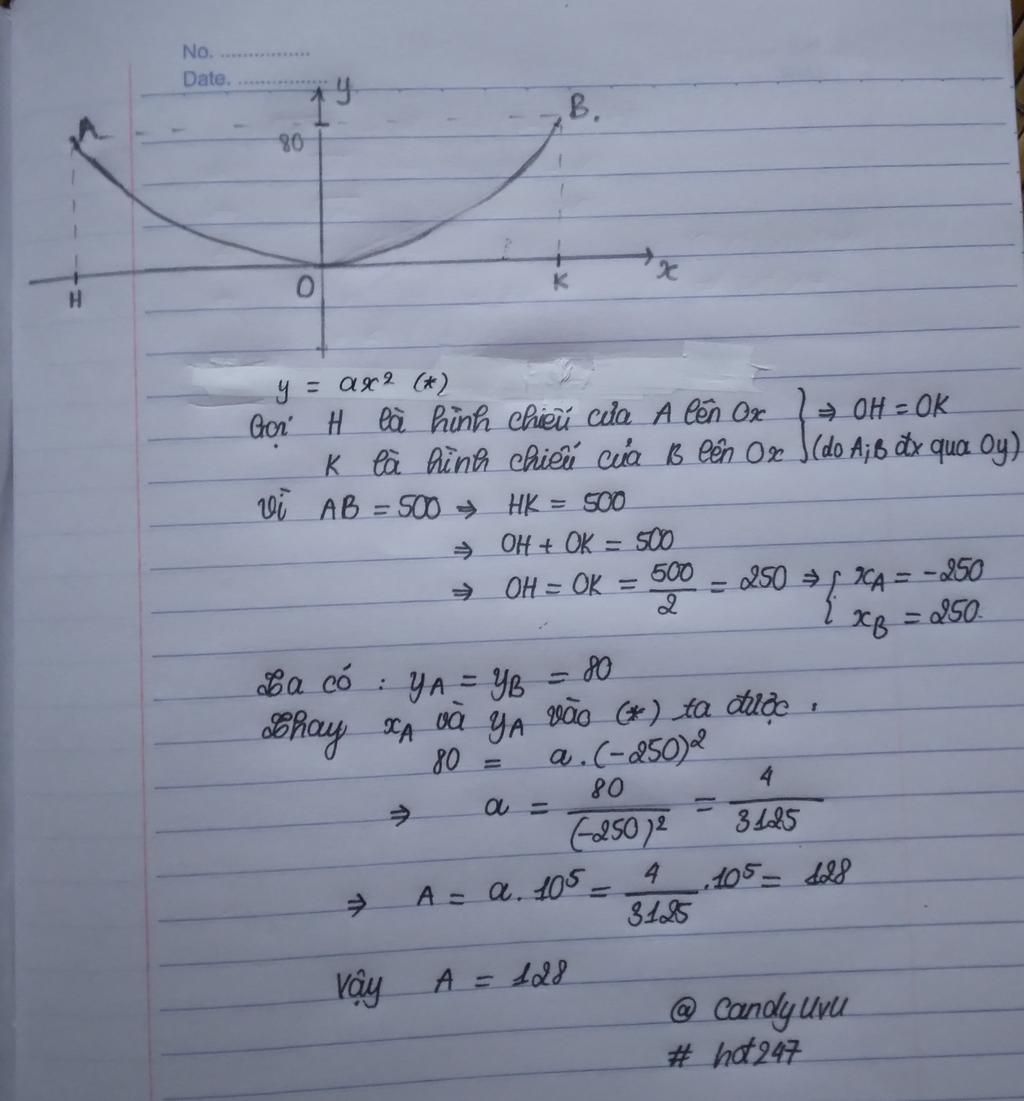 No. ................
Date. ................
y
A
B.
80
O
x
H
K
y = ax² (*)
Gọi H là hình chiếu của A lên Ox } ⇒ OH = OK
K là hình chiếu của B lên Ox (do A;B đx qua Oy)
Vì AB = 500 ⇒ HK = 500
⇒ OH + OK = 500
⇒ OH = OK = 500/2 = 250 ⇒ { xA = -250
xB = 250.
Ta có : yA = yB = 80
Thay xA và yA vào (*) ta được :
80 = a.(-250)²
⇒ a = 80/(-250)² = 4/3125
⇒ A = a. 10⁵ = 4/3125 .10⁵ = 128
Vậy A = 128
@ Candyuvu
# hot247